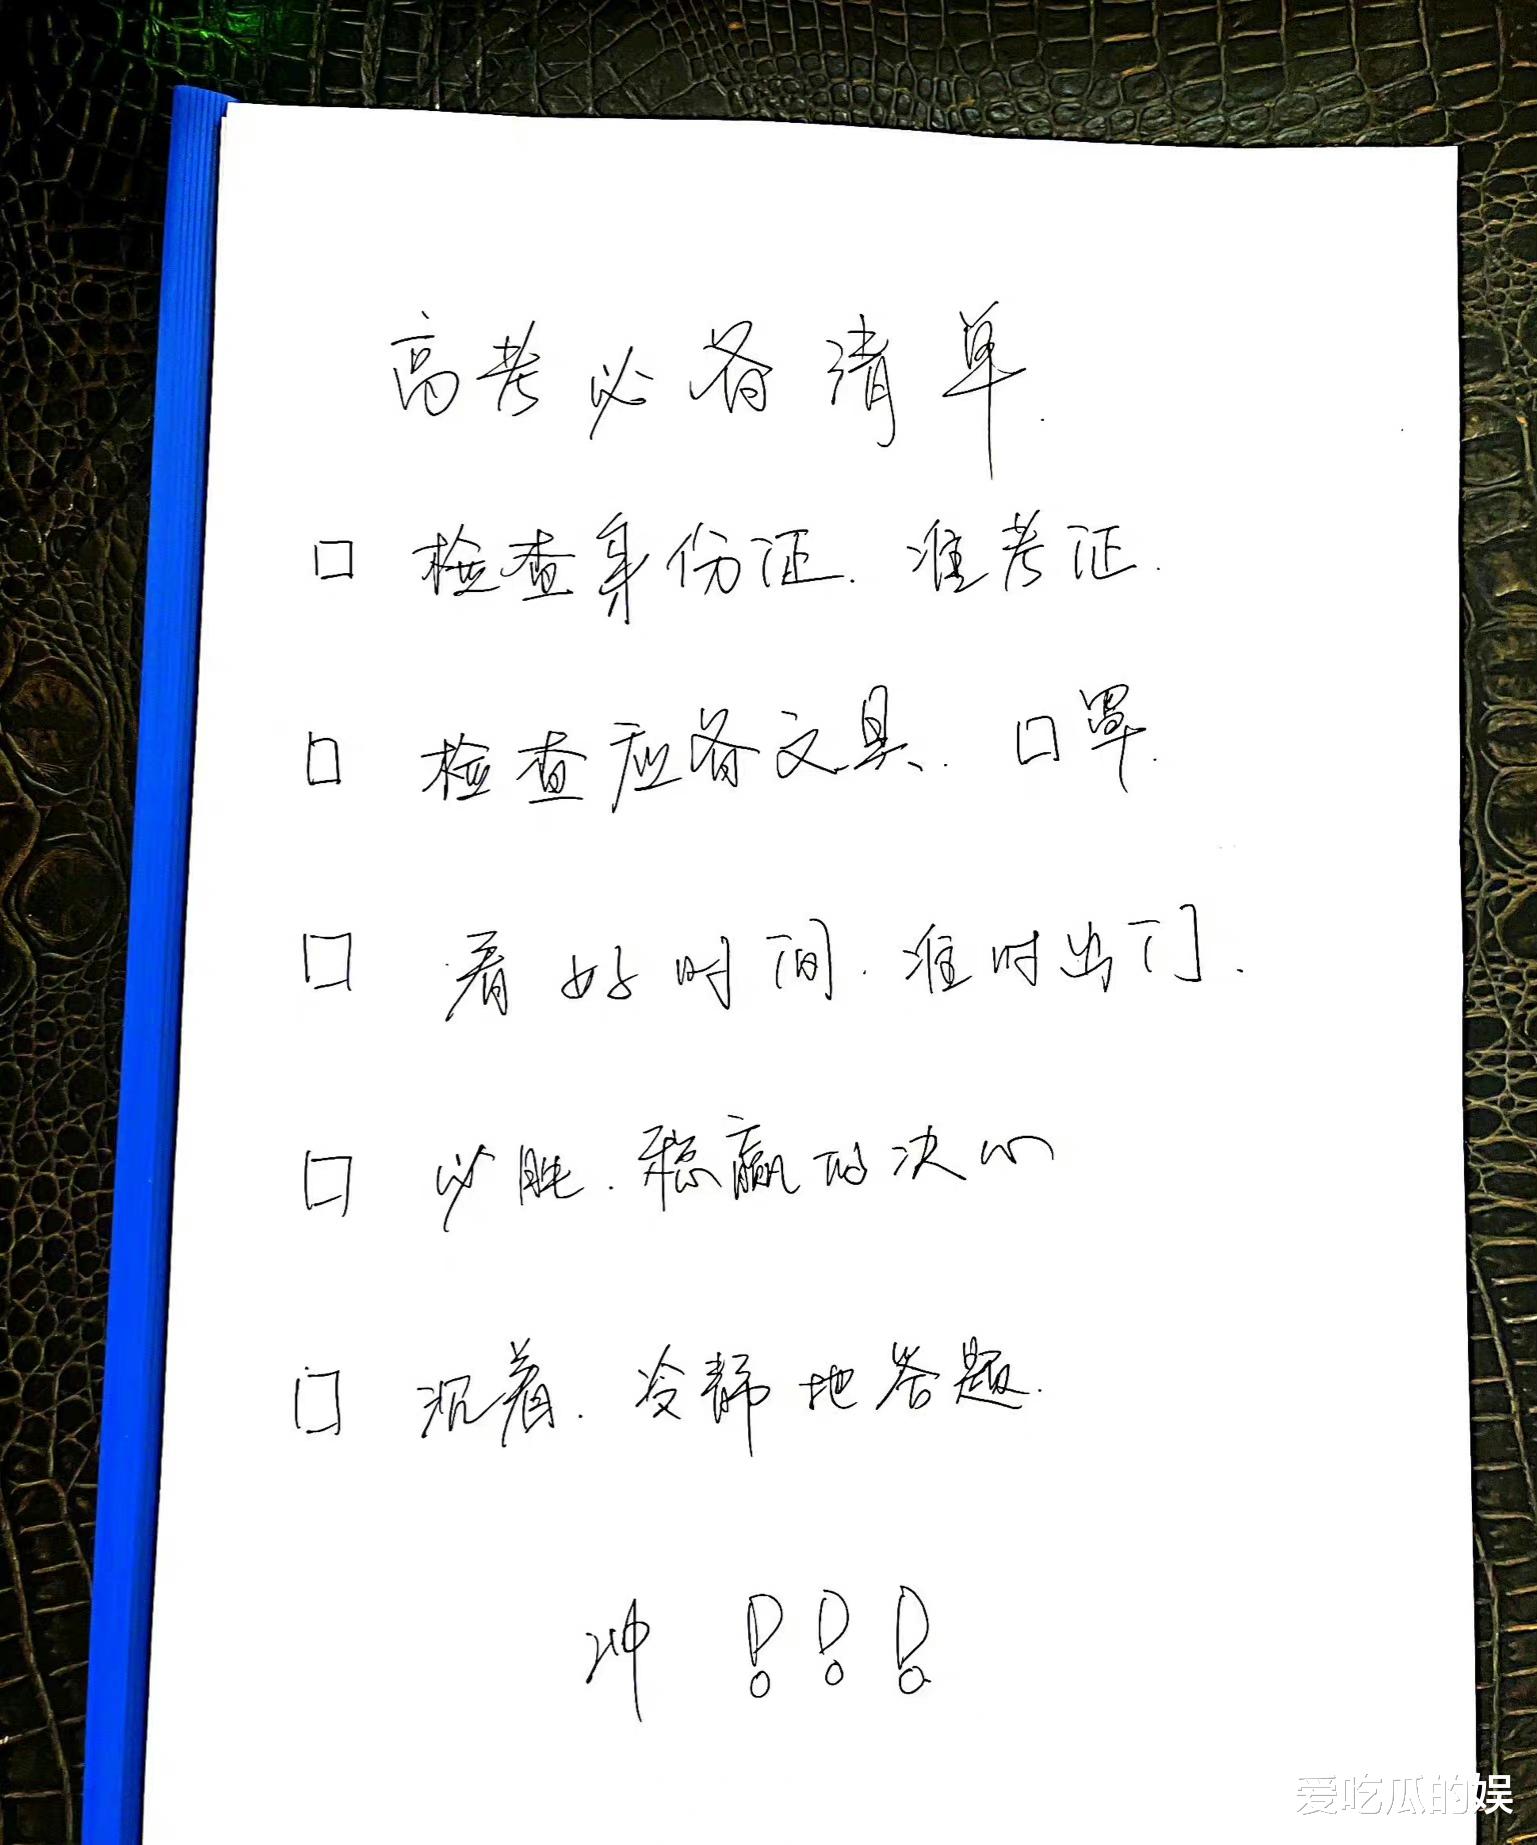 高考必备清单.
□ 检查身份证. 准考证.
□ 检查应备文具. 口罩.
□ 看好时间. 准时出门.
□ 必胜. 稳赢的决心
□ 沉着. 冷静地答题.
冲!!!
爱吃瓜的娱